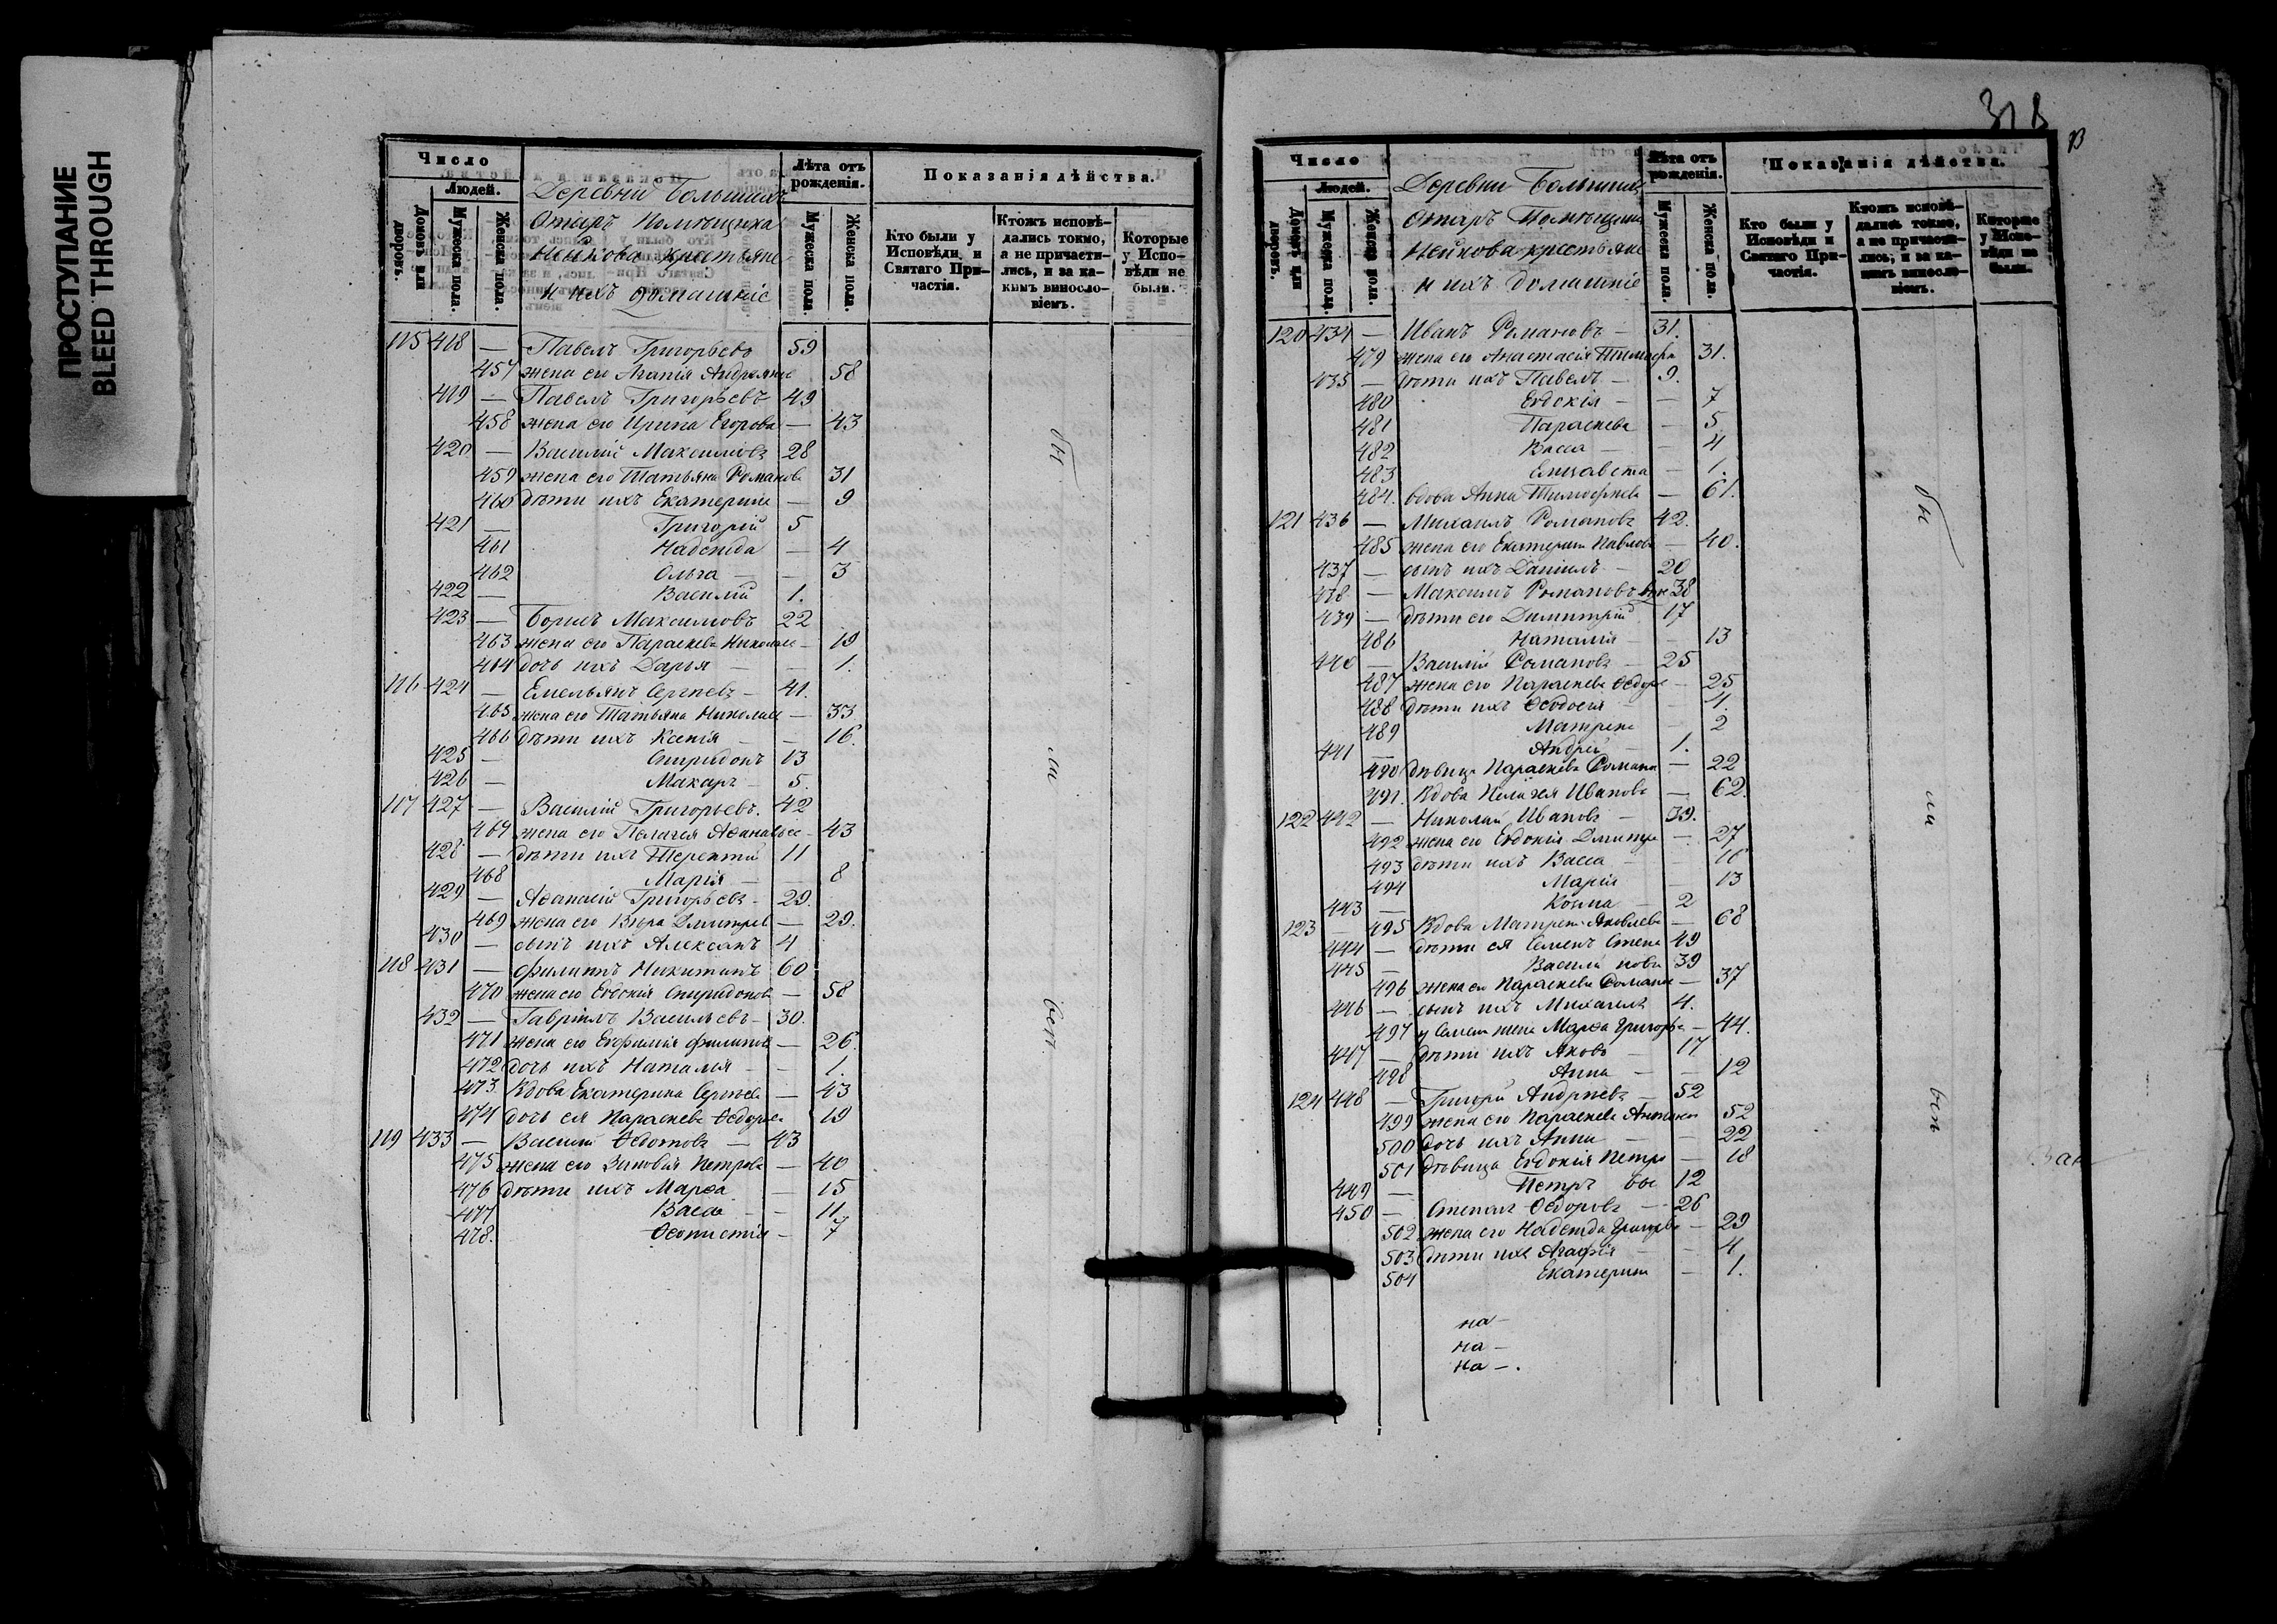 ПРОСТУПАНИЕ
BLEED THROUGH
Число
Людей.
Домовъ или дворовъ.
Мужеска пола.
Женска пола.
Деревни Большихъ
Отаръ Помѣщика
крестьяне
и ихъ домашніе
Лѣта отъ рожденія.
Мужеска пола.
Женска пола.
Показанія дѣйства.
Кто были у Исповѣди и Святаго При-
частія.
Ктожъ исповѣ-
дались токмо,
а не причасти-
лись, и за ка-
кимъ винословіемъ.
Которые у Испо-
вѣди не были.
115 418 — Павелъ Григорьевъ 59
457 жена его Агапія 58
419 — Павелъ Григорьевъ 49
458 жена его Ирина Егорова — 43
420 — Василій Максимовъ 28
459 жена его Татьяна Романова 31
460 дѣти ихъ Екатерина — 9
421 — Григорій 5
461 Надежда — 4
462 Ольга — — 3
422 — Василій 1.
423 — Борисъ Максимовъ 22
463 жена его Параскева Николаева — 19
464 дочь ихъ Дарья — — 1.
116 424 — Емельянъ Сергѣевъ — 41.
465 жена его Татьяна Николаев — 33
466 дѣти ихъ Ксенія — — 16.
425 — Спиридонъ 13
426 — Макаръ — 5.
117 427 — Василій Григорьевъ. 42
467 жена его Пелагея Аѳанасье — 43
428 — дѣти ихъ Терентій 11
468 Марія — — 8
429 — Аѳанасій Григорьевъ — 29.
469 жена его Вѣра Дмитрев — 29.
430 — сынъ ихъ Алексанъ 4
118 431 — Филиппъ Никитинъ 60
470 жена его Евдокія Спиридонов — 58
432 — Гавріилъ Васильевъ — 30.
471 жена его Евфимія Филипов — 26.
472 дочь ихъ Наталія — — 1.
473 Вдова Екатерина Сергѣева — 43
474 дочь ея Параскева Ѳедорова 19
119 433 — Василій Ѳедотовъ — 43
475 жена его Зиновія Петрова — 40
476 дѣти ихъ Марѳа — 15
477 Васса — — 11.
478. Ѳеоктистія — 7
бы
ли
всѣ.
318
Число
Людей.
Домовъ или дворовъ.
Мужеска пола.
Женска пола.
Деревни Большихъ
Отаръ Помѣщика
Нейкова крестьяне
и ихъ домашніе
Лѣта отъ рожденія.
Мужеска пола.
Женска пола.
Показанія дѣйства.
Кто были у Исповѣди и Святаго При-
частія.
Ктожъ исповѣ-
дались токмо,
а не причасти-
лись, и за ка-
кимъ винослo-
віемъ.
Которые у Испо-
вѣди не были.
120 434 — Иванъ Романовъ — 31.
479 жена его Анастасія Тимоѳе 31.
435 — дѣти ихъ Павелъ — 9.
480 Евдокія — — 7
481 Параскева — 5
482 Васса — — 4
483 Елисавета — 1.
484. вдова Анна Тимоѳеева — 61.
121 436 — Михаилъ Романовъ 42.
485 жена его Екатерина Павлова — 40.
437 — сынъ ихъ Даніилъ — 20
438 — Максимъ Романовъ 38
439 — дѣти его Димитрій 17
486 Наталія — — 13
440 — Василій Романовъ — 25
487 жена его Параскева Ѳедоро — 25
488 дѣти ихъ Ѳеодосія — — 4.
489 Матрена — 2
441 — Андрей — 1.
490 дѣвица Параскева Романа — 22
491. Вдова Пелагея Иванова — 62.
122 442 — Николай Ивановъ — 39.
492 жена его Евдокія Дмитре — 27
493 дѣти ихъ Васса — — 16
494 Марія — 13
443 — Козма — 2
123 — 495 Вдова Матрена Яковлева — 68
444 — дѣти ея Семенъ Степа 49
445 — Василій новы 39
496 жена его Параскева Романа — 37
446 — сынъ ихъ Михаилъ 4.
497 у Семена жена Марѳа Григорьева — 44.
447 — дѣти ихъ Яковъ — 17
498 Анна — — 12
124 448 — Григорій Андреевъ — 52
499 жена его Параскева 52
500 дочь ихъ Анна — — 22
501 дѣвица Евдокія Петро — 18
449 — Петръ вы 12
450 — Степанъ Ѳедоровъ — 26
502 жена его Надежда Григорьева — 29
503 дѣти ихъ Агафія — — 4
504 Екатерина — 1.
на —
на —
на — .
бы
ли
всѣ